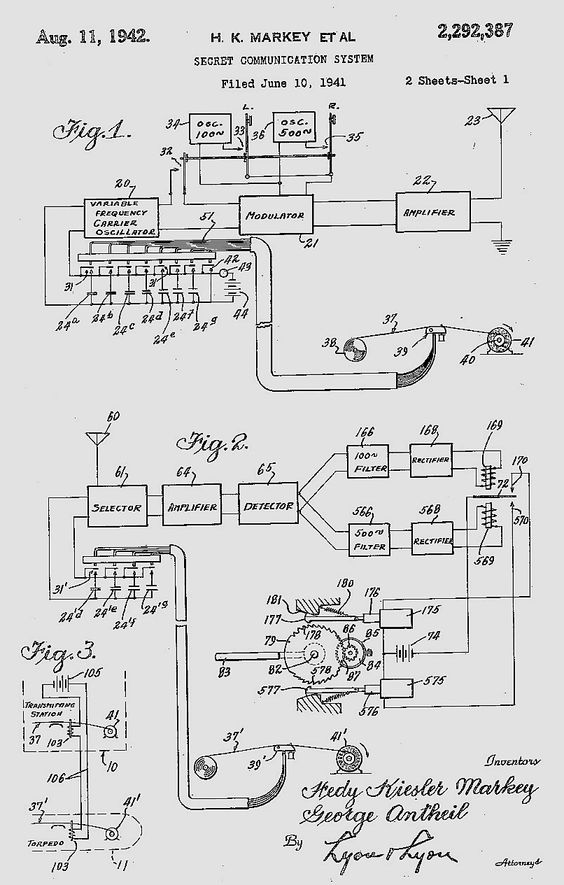 Aug. 11, 1942.
H. K. MARKEY ET AL
2,292,387
SECRET COMMUNICATION SYSTEM
Filed June 10, 1941
2 Sheets-Sheet 1
Fig.1.
34
OSC. 100~
L.
33
36
OSC. 500~
R.
35
23
32
20
VARIABLE FREQUENCY CARRIER OSCILLATOR
51
MODULATOR
21
22
AMPLIFIER
31
31
42
43
44
24a
24b
24c
24d
24e
24f
24g
37
38
39
40
41
Fig.2.
60
61
SELECTOR
64
AMPLIFIER
65
DETECTOR
166
100~ FILTER
168
RECTIFIER
169
170
72
566
500~ FILTER
568
RECTIFIER
569
570
31'
24'd
24'e
24'f
24'g
180
181
176
177
175
79
178
86
85
74
83
82
578
87
84
577
576
575
Fig.3
105
TRANSMITTING STATION
41
37
103
10
106
37'
41'
TORPEDO
103
11
37'
39'
41'
Inventors
Hedy Kiesler Markey
George Antheil
By
Lyon & Lyon
Attorneys